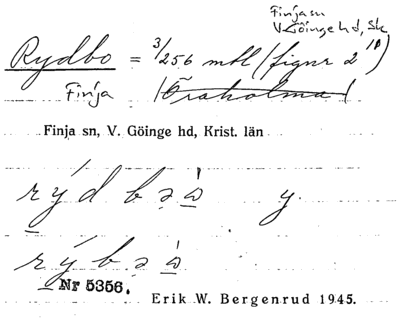 Finja sn
V Göinge hd, Sk
Rydbo = 3/256 mtl (figur 2 1D)
Finja /Öraholma/
Finja sn, V. Göinge hd, Krist. län
rýdbəὼ y.
rýbəὼ
Nr 5356.
Erik W. Bergenrud 1945.